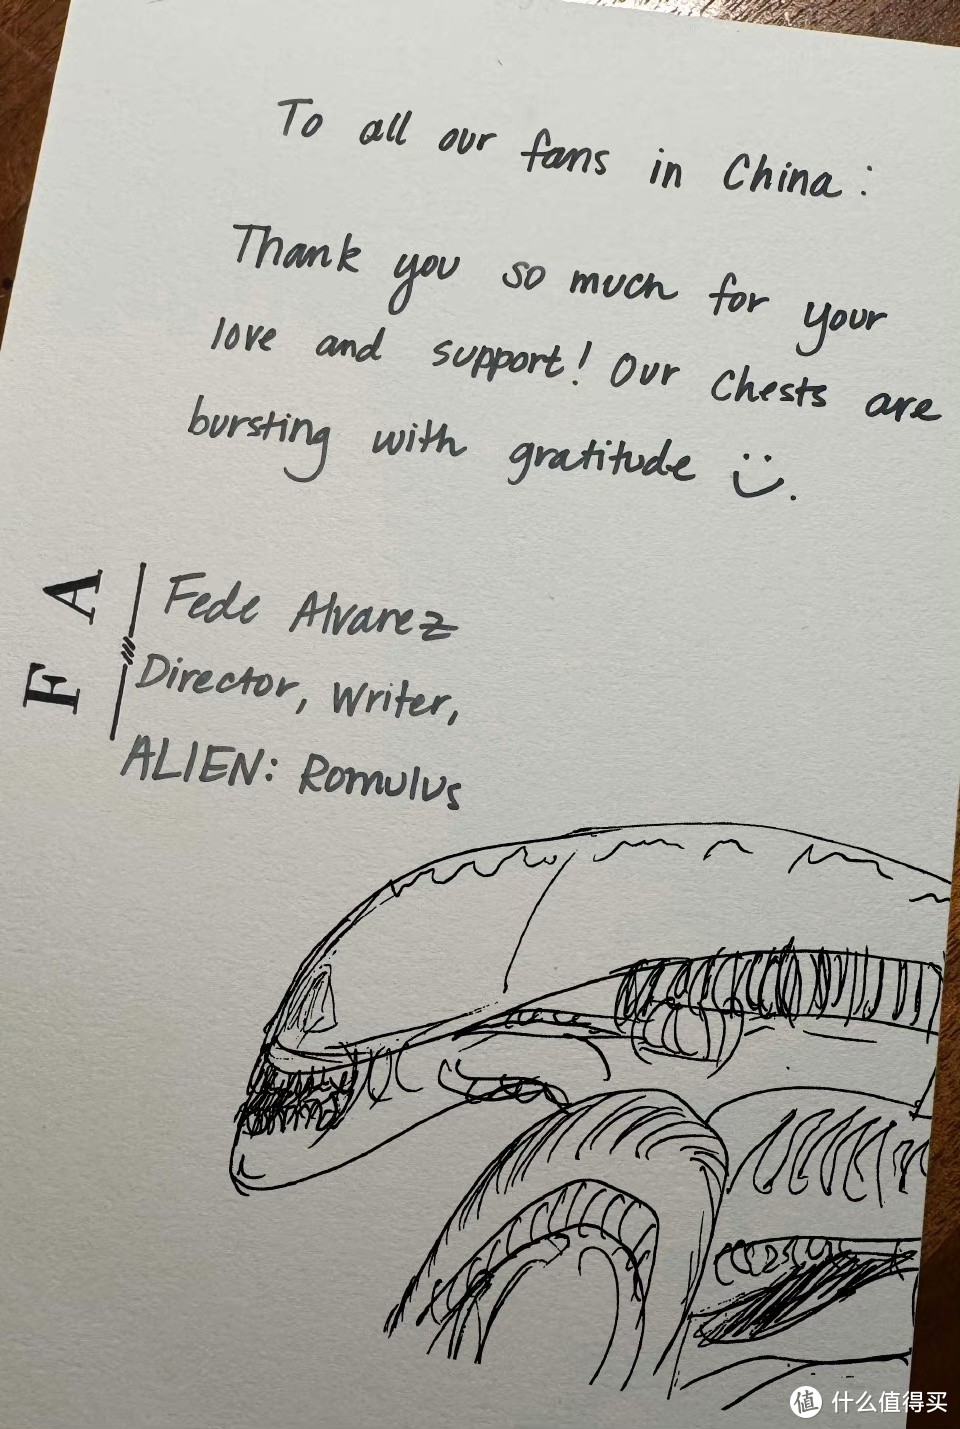 To all our fans in China:
Thank you so much for your
love and support! Our Chests are
bursting with gratitude :).
F A
Fede Alvarez
Director, Writer,
ALIEN: Romulus
值 什么值得买